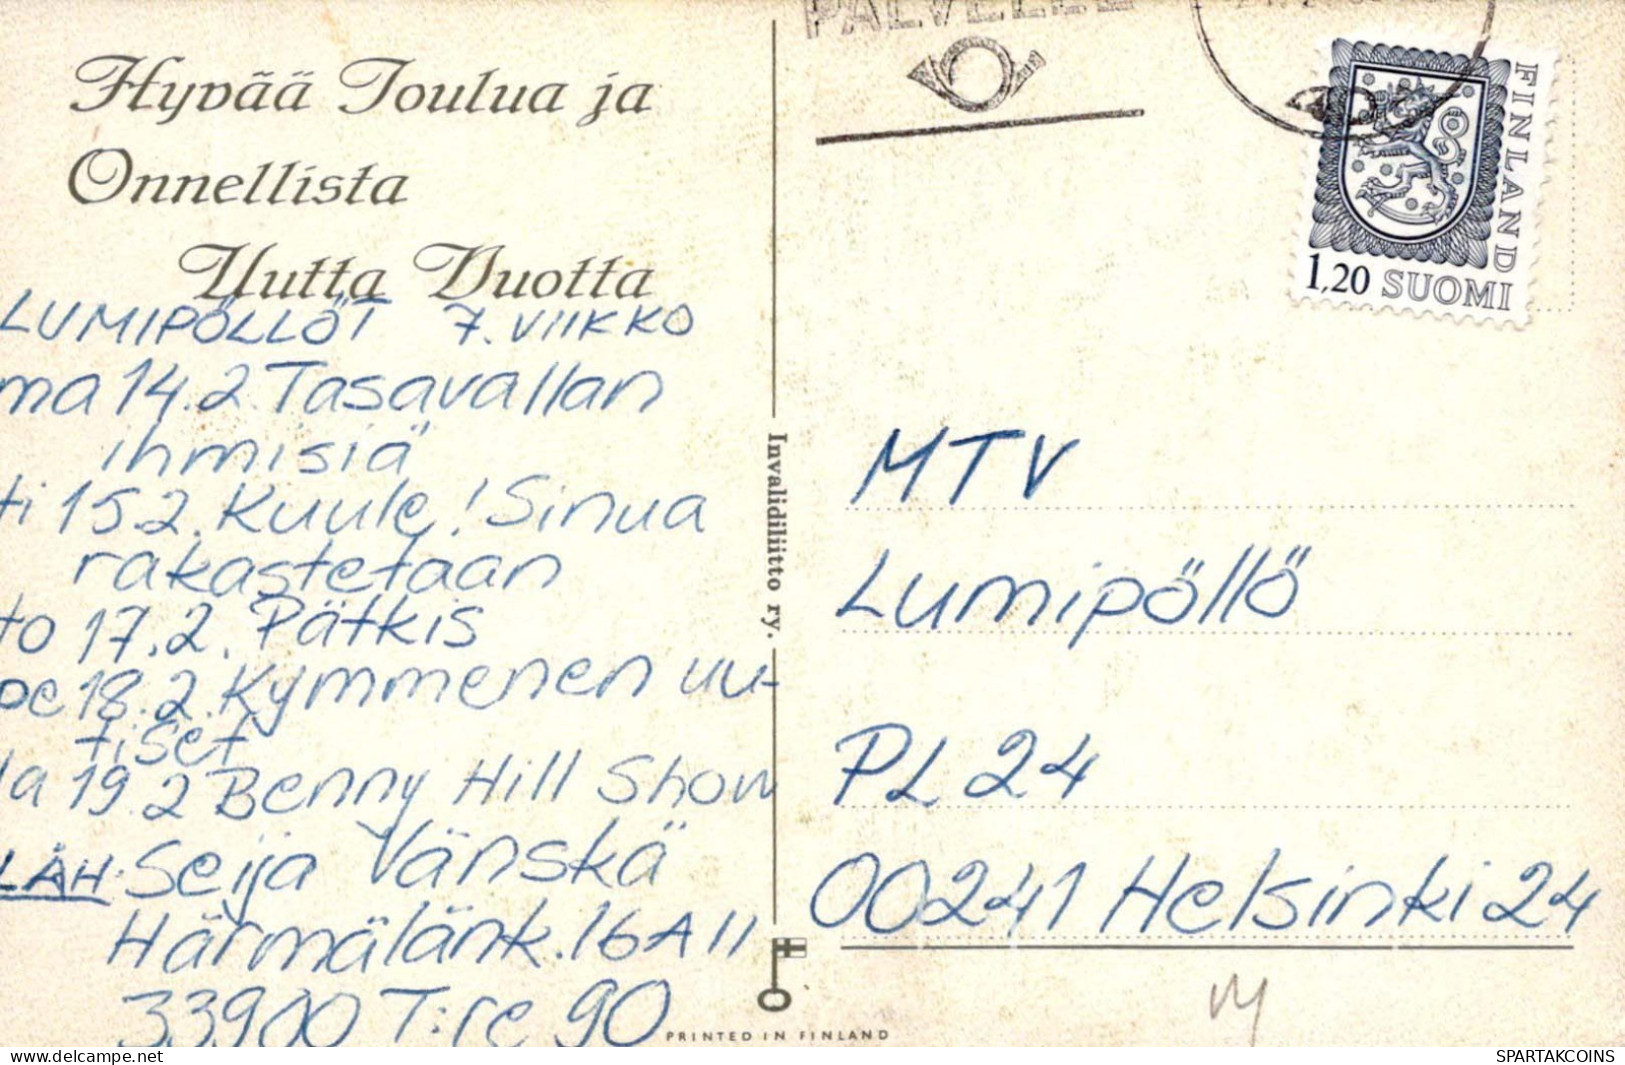 Hyvää Joulua ja
Onnellista
Uutta Vuotta
LUMIPÖLLÖT 7. VIIKKO
ma 14.2. Tasavallan
ihmisiä
ti 15.2. Kuule! Sinua
rakastetaan
to 17.2. Pätkis
pe 18.2. Kymmenen uu-
tiset
la 19.2 Benny Hill Show
LÄH. Seija Vänskä
Härmälänk. 16 A 11
33900 T:re 90
Invalidiliitto ry.
PRINTED IN FINLAND
FINLAND
1,20 SUOMI
MTV
Lumipöllö
PL 24
00241 Helsinki 24
SPARTAKCOINS
https://www.delcampe.net